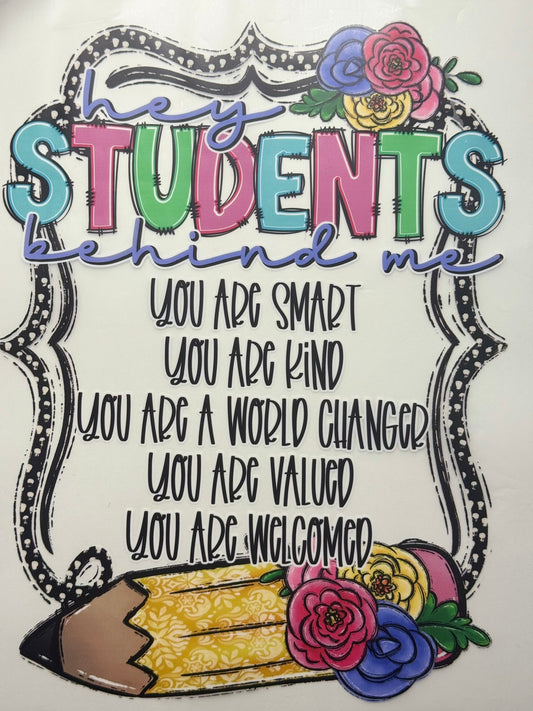 hey
STUDENTS
behind me
YOU ARE SMART
YOU ARE KIND
YOU ARE A WORLD CHANGER
YOU ARE VALUED
YOU ARE WELCOMED